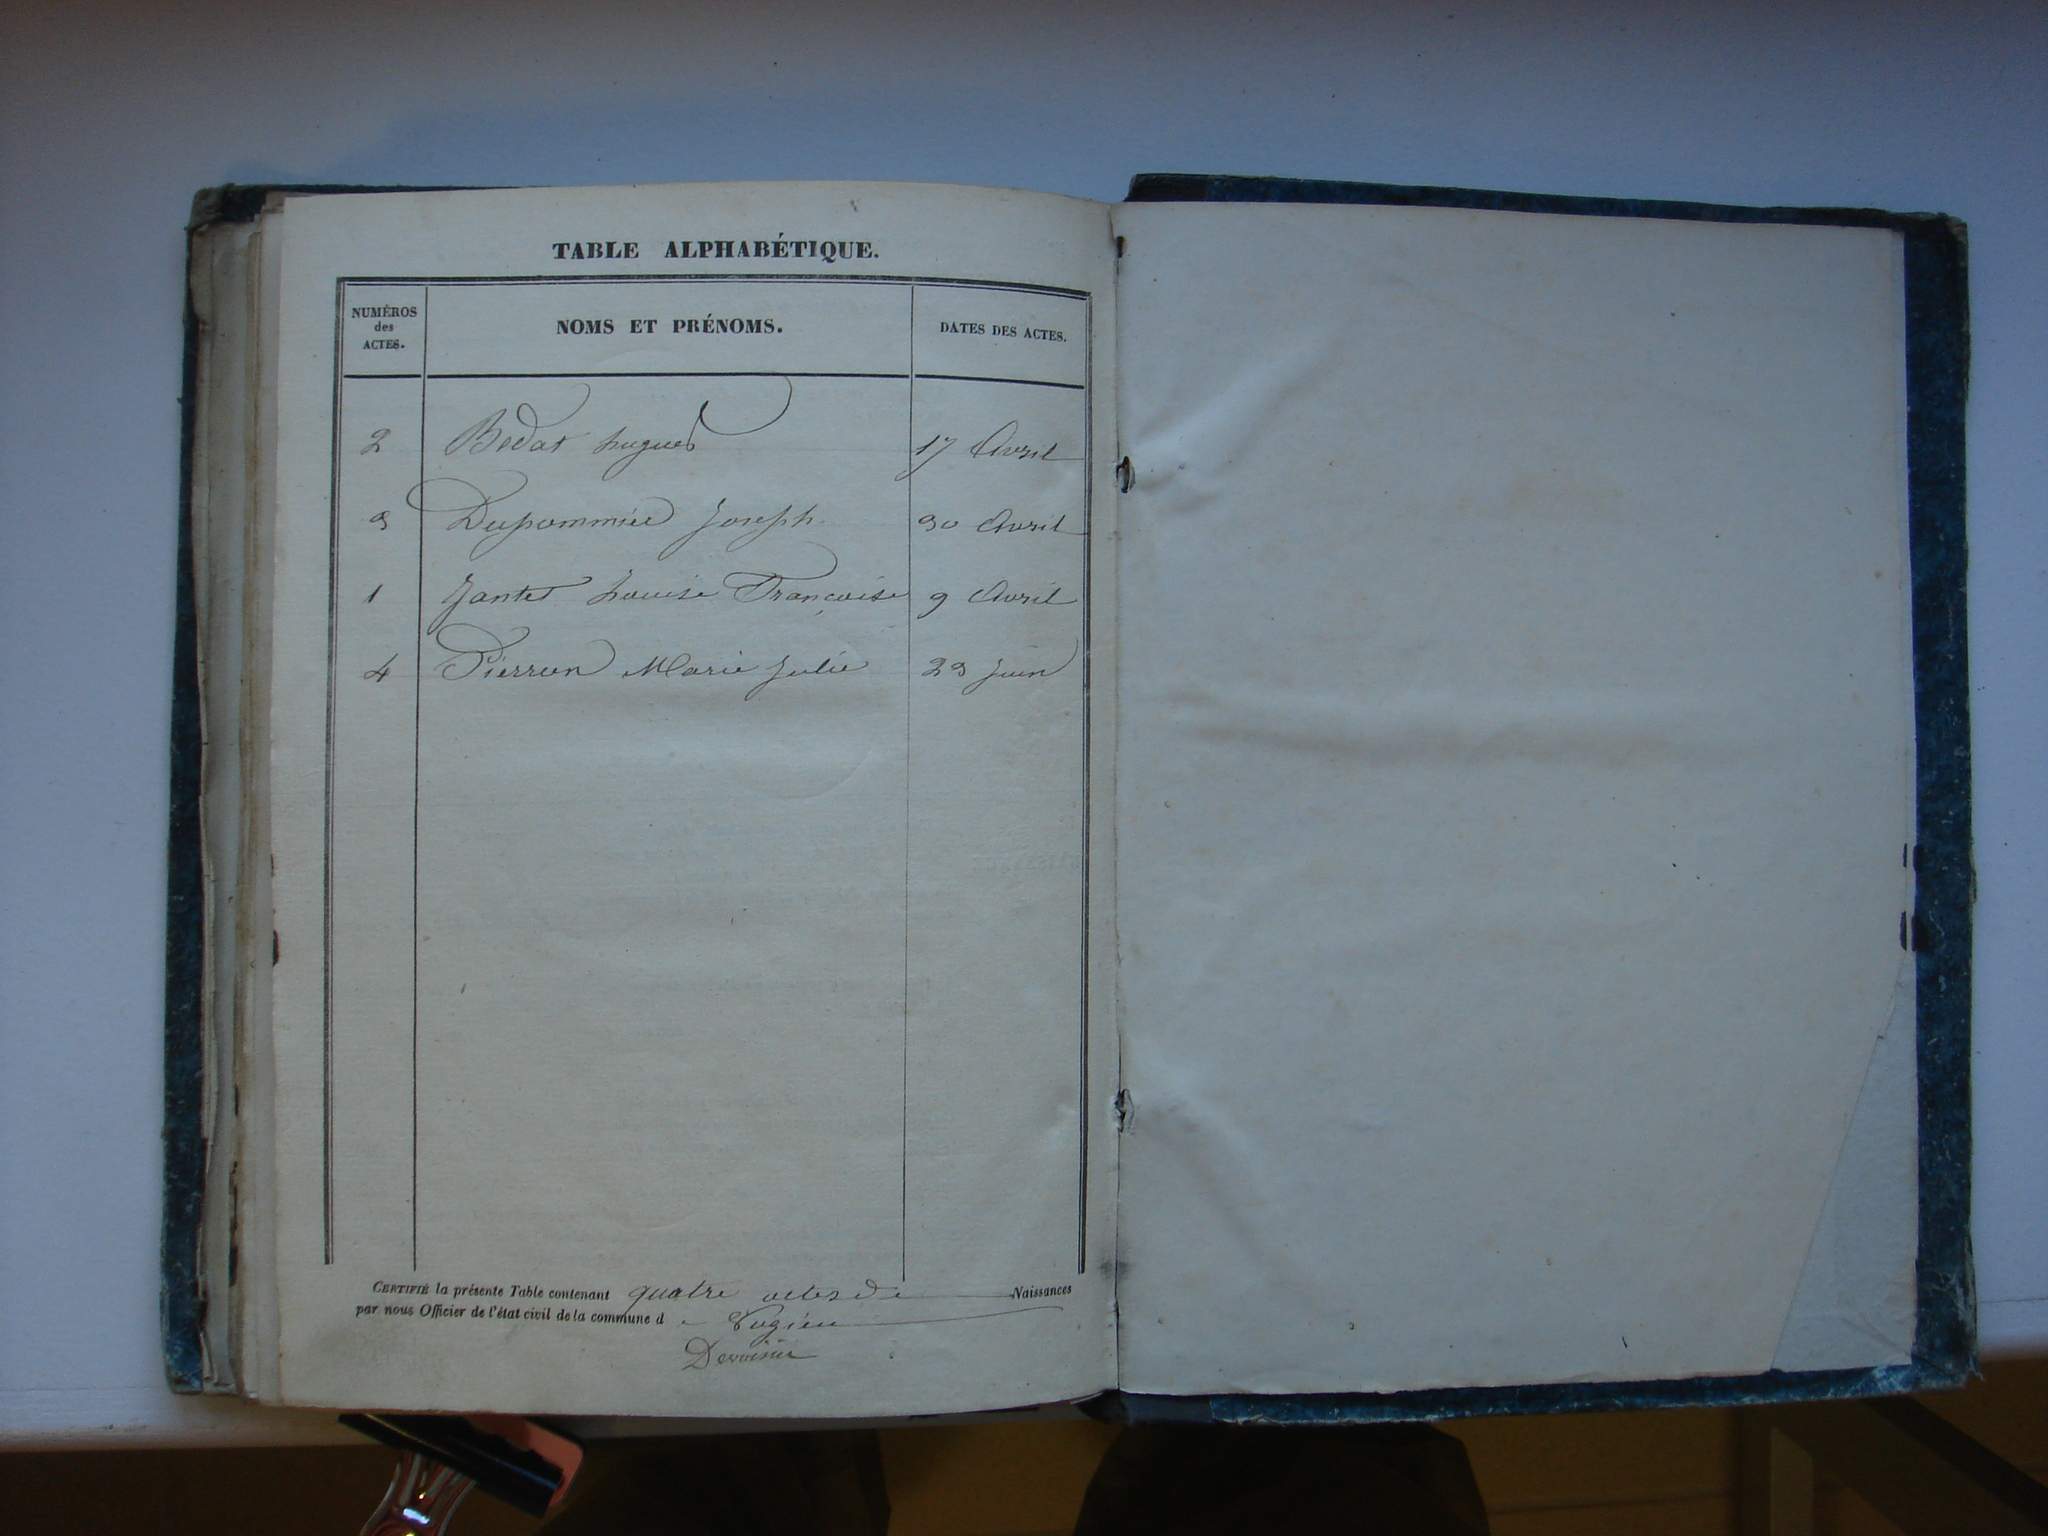 TABLE ALPHABÉTIQUE.
NUMÉROS des ACTES. NOMS ET PRÉNOMS. DATES DES ACTES.
2 Bedat hugues 17 Avril
3 Dupommier Joseph 30 Avril
1 Jantet Louise Françoise 9 Avril
4 Pierron Marie Julie 23 Juin
CERTIFIÉ la présente Table contenant quatre actes de Naissances
par nous Officier de l'état civil de la commune d e Pugieu